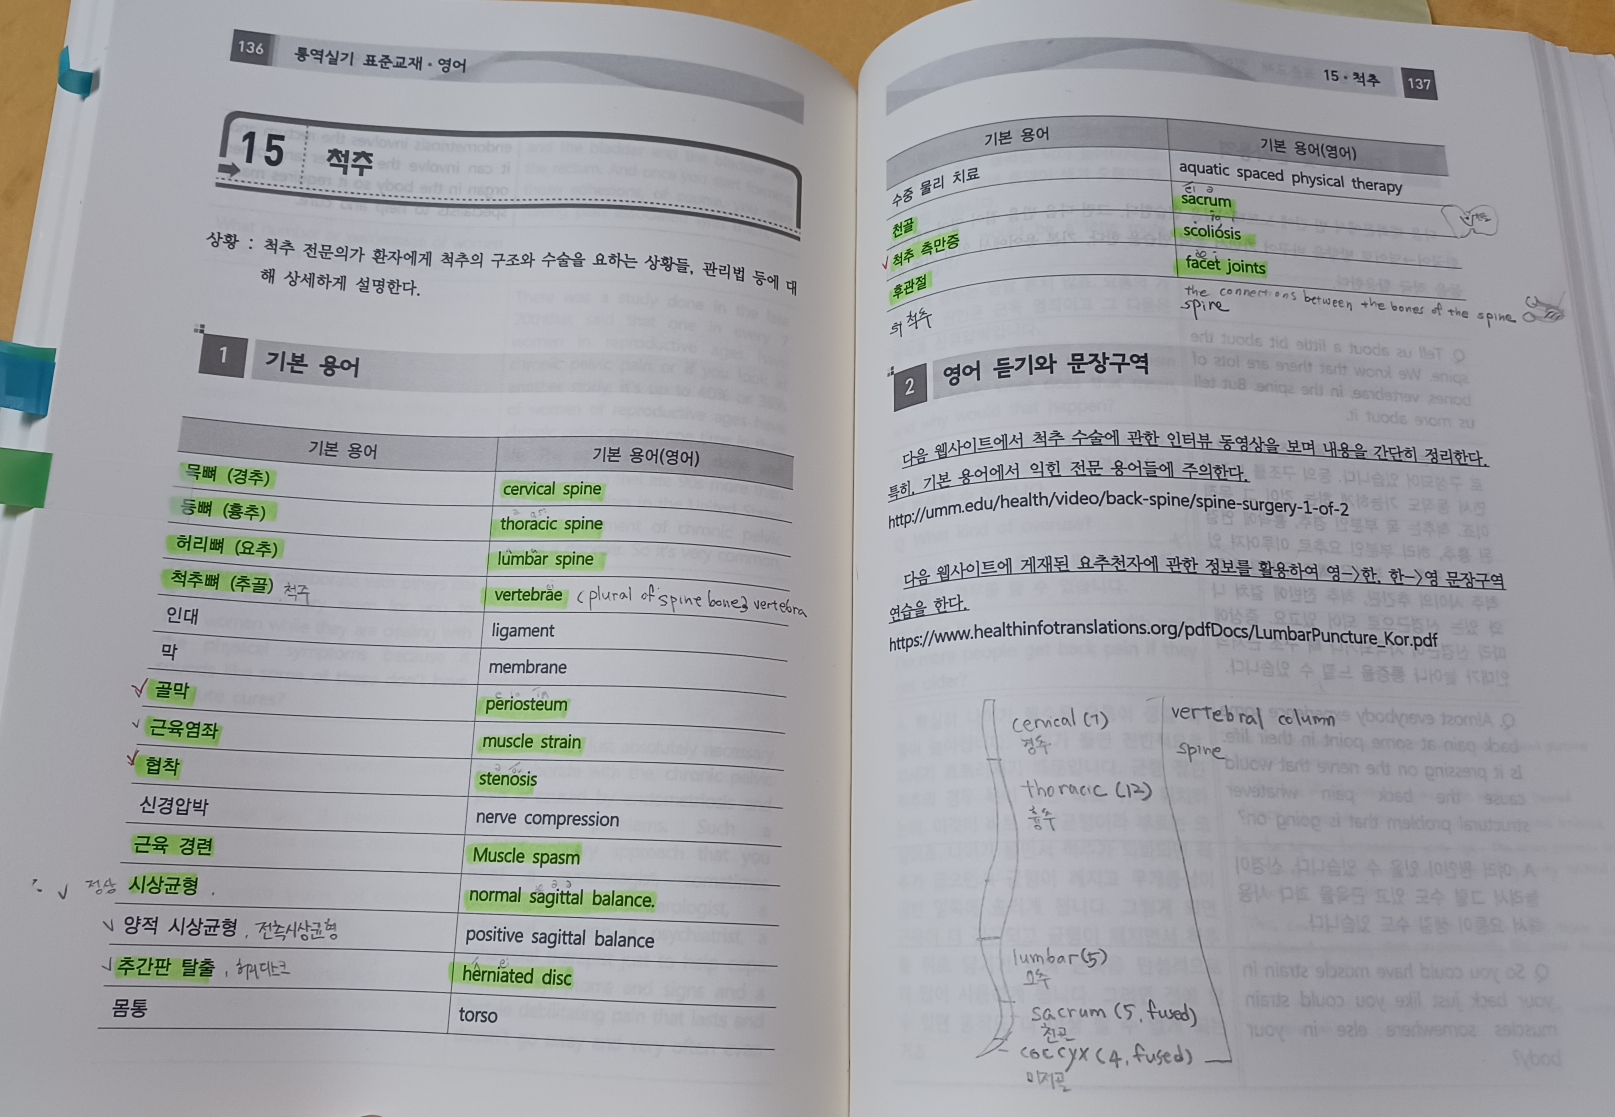 136 통역실기 표준교재 · 영어
15 척추
상황 : 척추 전문의가 환자에게 척추의 구조와 수술을 요하는 상황들, 관리법 등에 대
해 상세하게 설명한다.
1 기본 용어
기본 용어 기본 용어(영어)
목뼈 (경추) cervical spine
등뼈 (흉추) thoracic spine
허리뼈 (요추) lumbar spine
척추뼈 (추골) 척주 vertebrae (plural of spine bones vertebra
인대 ligament
막 membrane
골막 periosteum
근육염좌 muscle strain
협착 stenosis
신경압박 nerve compression
근육 경련 Muscle spasm
정상 시상균형 normal sagittal balance.
양적 시상균형, 전측시상균형 positive sagittal balance
추간판 탈출, 허리디스크 herniated disc
몸통 torso
15 · 척추 137
기본 용어 기본 용어(영어)
수중 물리 치료 aquatic spaced physical therapy
천골 sacrum
척추 측만증 scoliosis
후관절 facet joints
척추 the connections between the bones of the spine
spine
2 영어 듣기와 문장구역
다음 웹사이트에서 척추 수술에 관한 인터뷰 동영상을 보며 내용을 간단히 정리한다.
특히, 기본 용어에서 익힌 전문 용어들에 주의한다.
http://umm.edu/health/video/back-spine/spine-surgery-1-of-2
다음 웹사이트에 게재된 요추천자에 관한 정보를 활용하여 영->한, 한->영 문장구역
연습을 한다.
https://www.healthinfotranslations.org/pdfDocs/LumbarPuncture_Kor.pdf
cervical (7) vertebral column
경추 spine
thoracic (12)
흉추
lumbar (5)
요추
sacrum (5, fused)
천골
coccyx (4, fused)
미저골